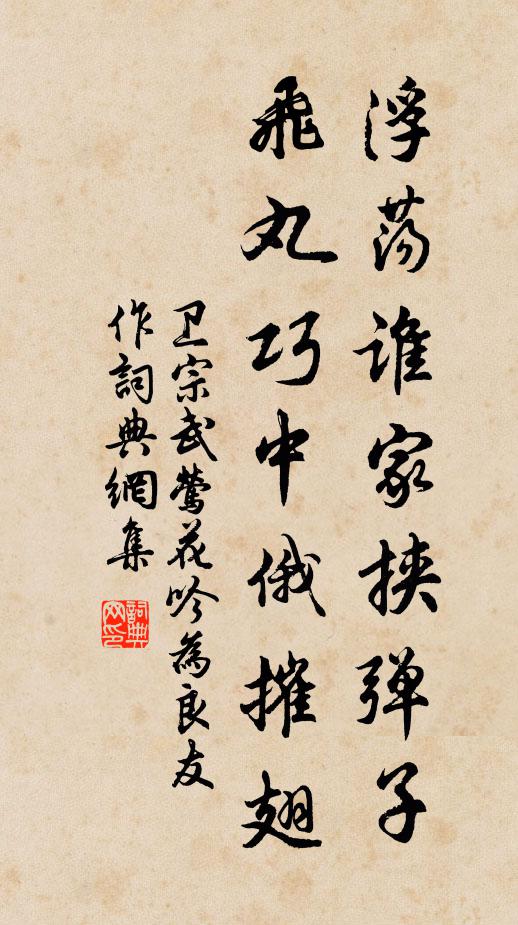 浮荡谁家挟弹子
飛丸巧中俄摧翅
卫宗武鶯花吟為良友
作詞典網集
詞典网印